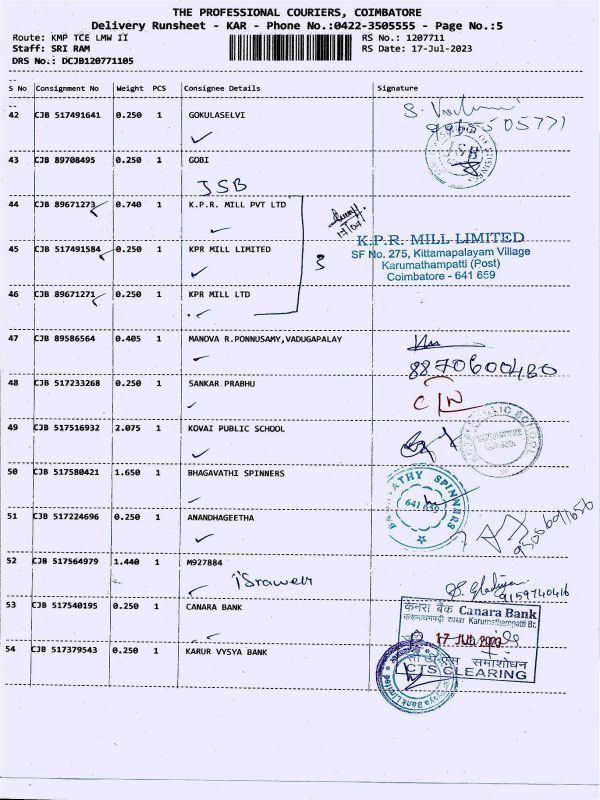 THE PROFESSIONAL COURIERS, COIMBATORE
Delivery Runsheet - KAR - Phone No.:0422-3505555 - Page No.:5
Route: KMP TCE LMW II RS No.: 1207711
Staff: SRI RAM RS Date: 17-Jul-2023
DRS No.: DCJB120771105
S No Consignment No Weight PCS Consignee Details Signature
42 CJB 517491641 0.250 1 GOKULASELVI
43 CJB 89708495 0.250 1 GOBI
JSB
JSB
44 CJB 89671273 0.740 1 K.P.R. MILL PVT LTD
K.P.R. MILL LIMITED
SF No. 275, Kittamapalayam Village
Karumathampatti (Post)
Coimbatore - 641 659
45 CJB 517491584 0.250 1 KPR MILL LIMITED
3
46 CJB 89671271 0.250 1 KPR MILL LTD
47 CJB 89586564 0.405 1 MANOVA R.PONNUSAMY,VADUGAPALAY
8870600480
48 CJB 517233268 0.250 1 SANKAR PRABHU
49 CJB 517516932 2.075 1 KOVAI PUBLIC SCHOOL
PUBLIC SCHOOL
50 CJB 517580421 1.650 1 BHAGAVATHI SPINNERS
SPINNERS
641 659
51 CJB 517224696 0.250 1 ANANDHAGEETHA
52 CJB 517564979 1.440 1 M927884
9159740416
53 CJB 517540195 0.250 1 CANARA BANK
केनरा बैंक Canara Bank
Karumathampatti Br.
17 JUL 2023
समाशोधन
CTS CLEARING
54 CJB 517379543 0.250 1 KARUR VYSYA BANK